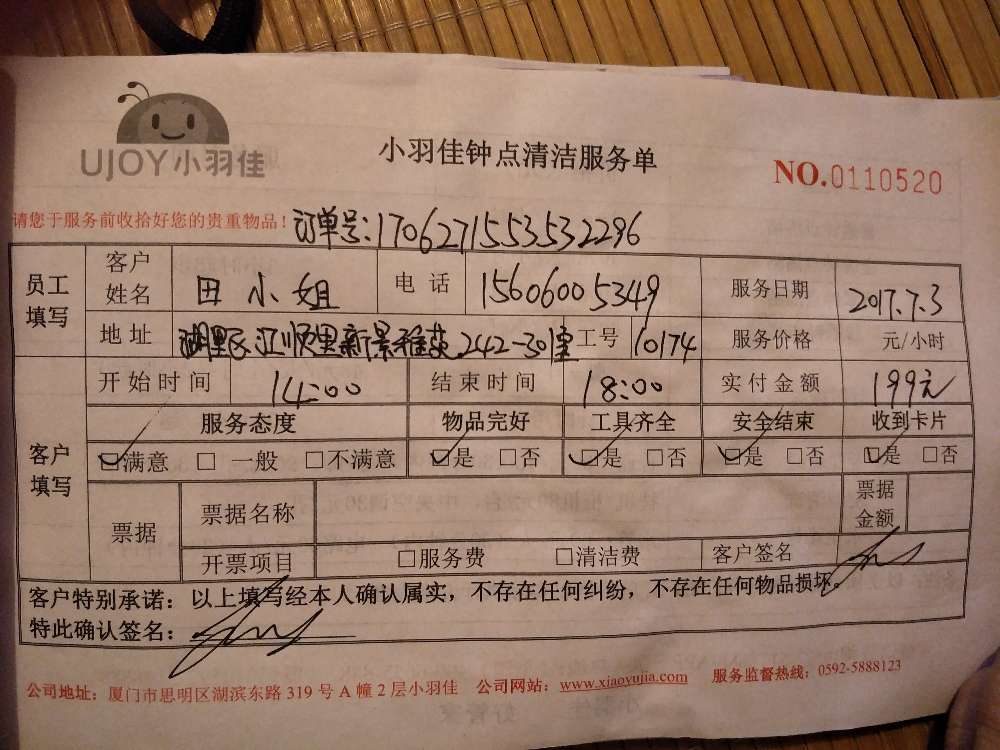 UJOY小羽佳
小羽佳钟点清洁服务单
NO.0110520
请您于服务前收拾好您的贵重物品！ 订单号:170627155353532296
员工填写 客户姓名 田小姐 电话 15606005349 服务日期 2017.7.3
地址 湖里区江顺里新景雅苑242-301室 工号 10174 服务价格 元/小时
开始时间 14:00 结束时间 18:00 实付金额 199元
客户填写 服务态度 物品完好 工具齐全 安全结束 收到卡片
☑满意 □一般 □不满意 ☑是 □否 ☑是 □否 ☑是 □否 ☑是 □否
票据 票据名称 票据金额
开票项目 □服务费 □清洁费 客户签名
客户特别承诺：以上填写经本人确认属实，不存在任何纠纷，不存在任何物品损坏。
特此确认签名：
公司地址：厦门市思明区湖滨东路319号A幢2层小羽佳 公司网站：www.xiaoyujia.com 服务监督热线：0592-5888123